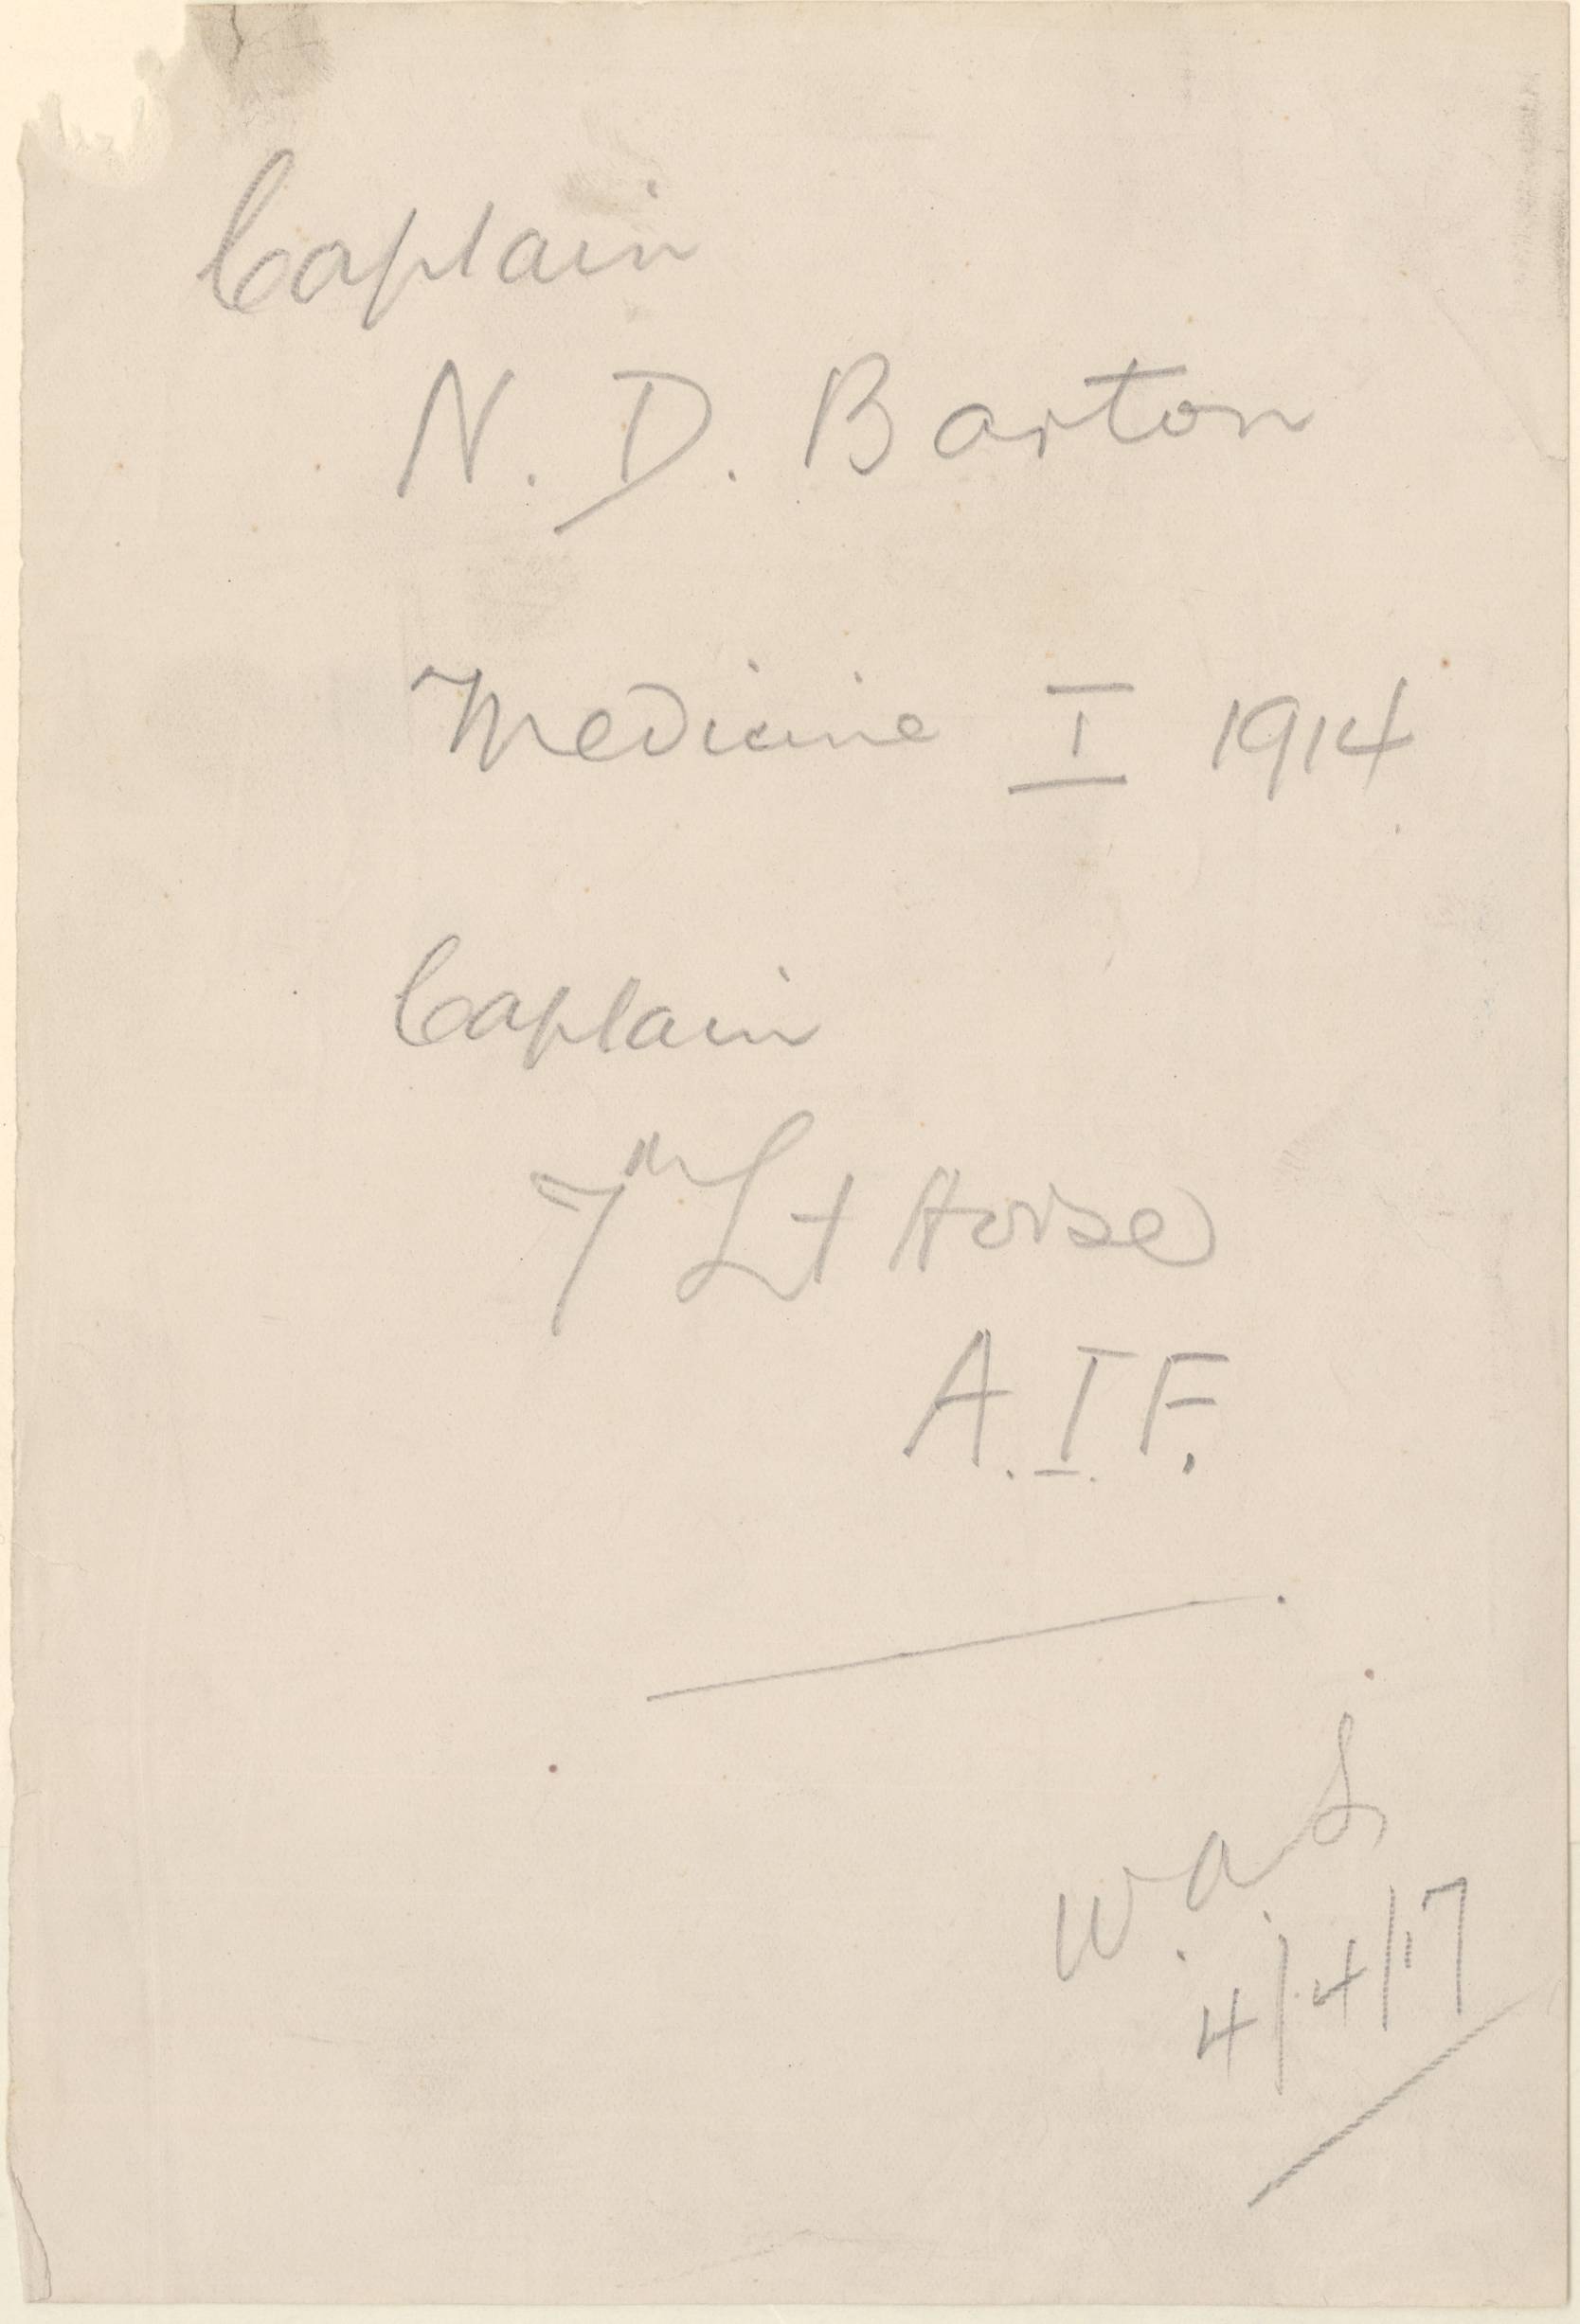 Captain
N. D. Barton
Medicine I 1914
Captain
7th Lt Horse
A.I.F.
W.a.S.
4/4/17